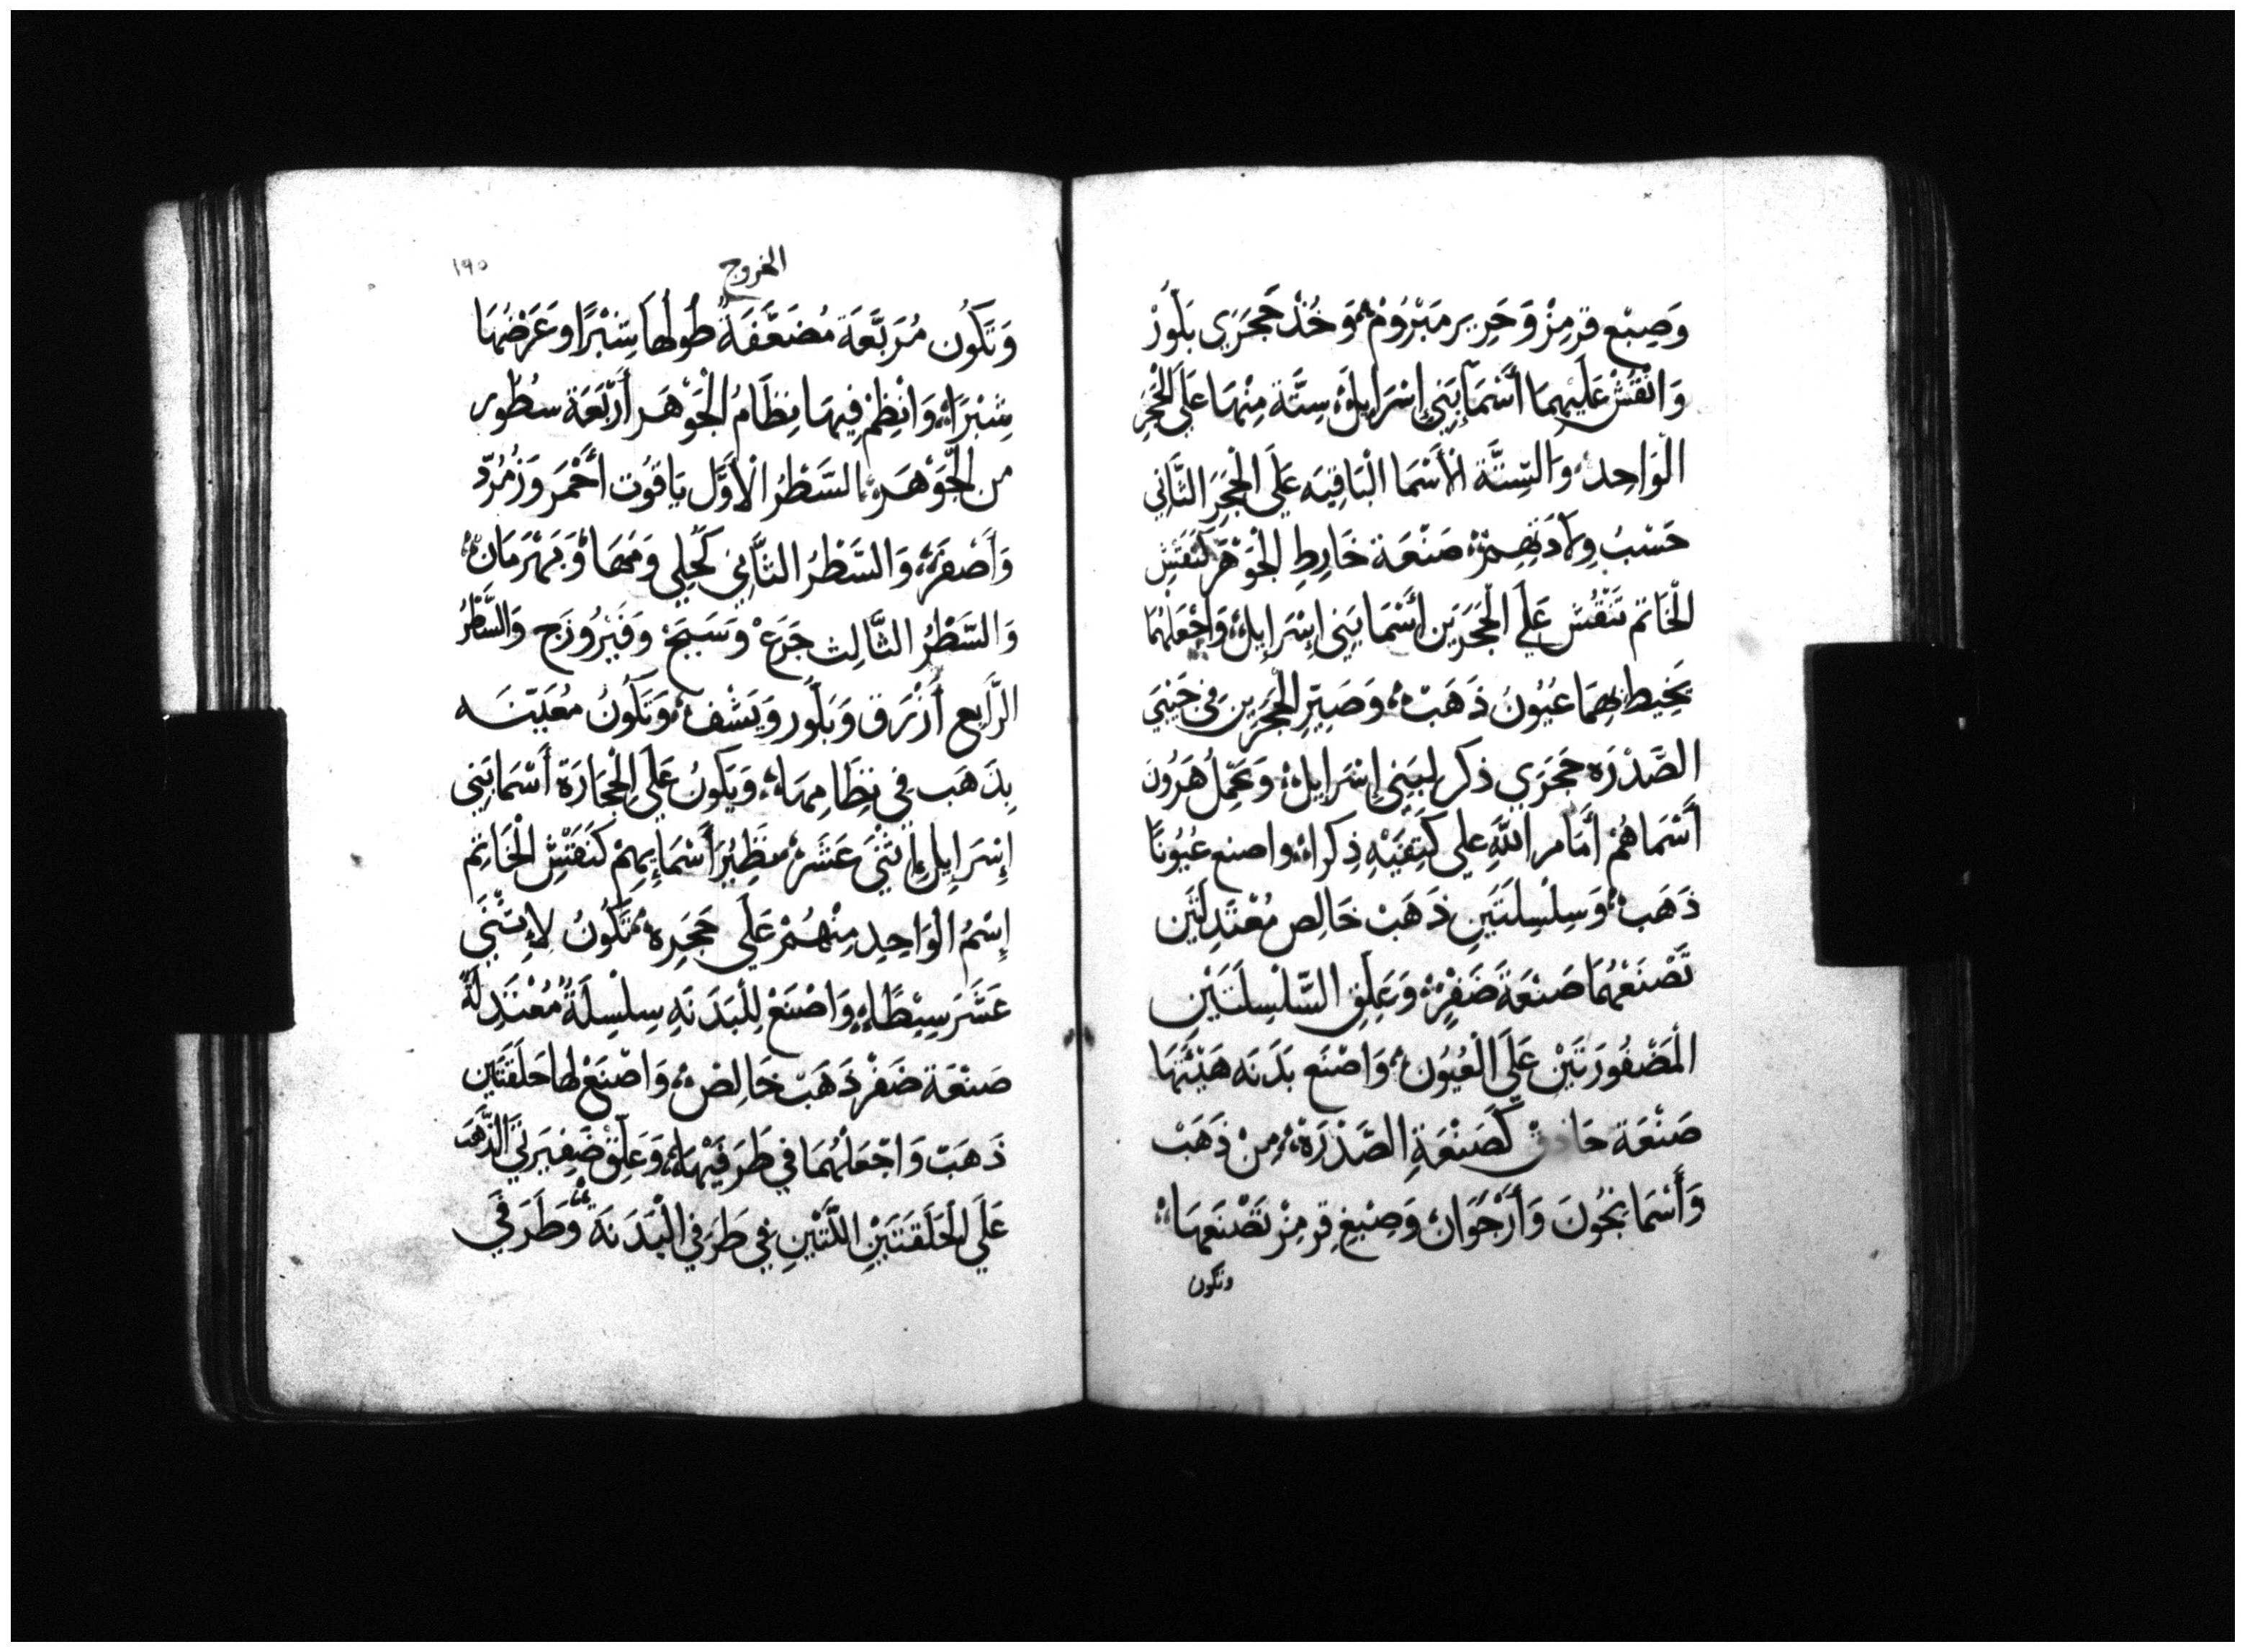 وَصِبْع قرمِزْ وَحَرِير مَبْرُومْ، وَخُذْ حَجَرَي بَلُّورْ
وَانْقُشْ عَلَيْهِمَا أَسْمَا بَنِي إِسْرَايِلَ، سِتَّة مِنْهَا عَلَي الْحَجَرِ
الْوَاحِد، وَالسِّتَّة الْأَسْمَا الْبَاقِيَه عَلَي الْحَجَرَ الثَّانِي
حَسْبُ وِلَادَتِهِمْ، صَنْعَة خَارِطِ الْجَوْهَر كَنَقْشِ
الْخَاتم تَنْقُش عَلَي الْحَجَرَيَن أَسْمَا بَنِي إِسْرَايِل، وَاجْعَلْهُمَا
يُحِيط بِهِمَا عُيُونُ ذَهَبْ، وَصَيِّرِ الْحَجَرَين في جَنْبَي
الصَّدْرَه حَجَرَي ذكر لبَنِي إِسْرَايِل، وَيَحْمِلُ هَرُونَ
أَسْمَاهُمْ أَمَامَ اللَّهِ علي كَتِفَيْهِ ذِكرًا، واصنع عُيُونًا
ذَهَبْ، وَسِلْسِلَتَيْنِ ذَهَبْ خَالِص مُعْتَدِلَتَين
تَصْنَعْهُمَا صَنْعَةَ ضَفْرٍ، وَعَلِقِ السِّلْسِلَتَيْنِ
الْمَضْفُورَتَيْنِ عَلَي الْعُيُون، وَاصْنَع بَدَنَه هَيْئَتَهَا
صَنْعَة حَاذق كَصَنْعَةِ الصَّدْرَة، مِنْ ذَهَبْ
وَأَسْمَانجُونَ وَأَرْجُوَان، وَصِبْغِ قِرمِزْ تَصْنَعهَا
وتكون
الخروج
١٩٥
وَتَكُون مُرَبَّعَة مُضَعَّفَةً طُولُهَا شِبْرًا وَعَرْضُهَا
شِبْرًا، وَانْظِمْ فِيهَا نِظَامُ الْجَوْهَر أَرْبَعَة سطُور
من الْجَوْهَر، السَّطْرُ الْأَوَّل يَاقُوت أَحْمَر وَزُمُرّد
وَأَصْفَر، وَالسَّطْرُ الثَّانِي كُحْلِي وَمَهَا، وَبَهْرَمَان،
وَالسَّطْرُ الثَّالِث جَزعْ وَسَبَجْ وَفَيْرُوزَج وَالسَّطْرُ
الرَّابِع أَزْرَق وَبَلُّور وَيَشْف، وَتَكُونُ مُعَيَّنَه
بِذَهَب فِي نِظَامِهَا، وَيَكُونُ عَلَي الْحِجَارَة أَسْمَا بَنِي
إِسْرَايِلِ إِثْنَي عَشَرْ نَظِيْرَ أَسْمَايِهِمْ كَنَقْشِ الْخَاتِم
إِسْمُ الْوَاحِدِ مِنْهُمْ عَلَي حَجَرِه، تَكُونُ لِإِثْنَي
عَشَرَ سِبْطًا، وَاصْنَعْ لِلْبَدَنَهِ سِلْسِلَةً مُعْتَدِلَةً
صَنْعَة ضَفْر ذَهَبْ خَالِصْ، وَاصْنَعْ لها حَلَقَتَين
ذَهَبْ وَاجْعَلْهُمَا فِي طَرَفَيْهَا، وَعَلِّقْ ضَفِيرَتَي الذَّهَب
عَلَي الْحَلَقَتَيْنِ اللَّتَيْنِ فِي طَرَفي الْبَدَنَة، وَطَرَفَي